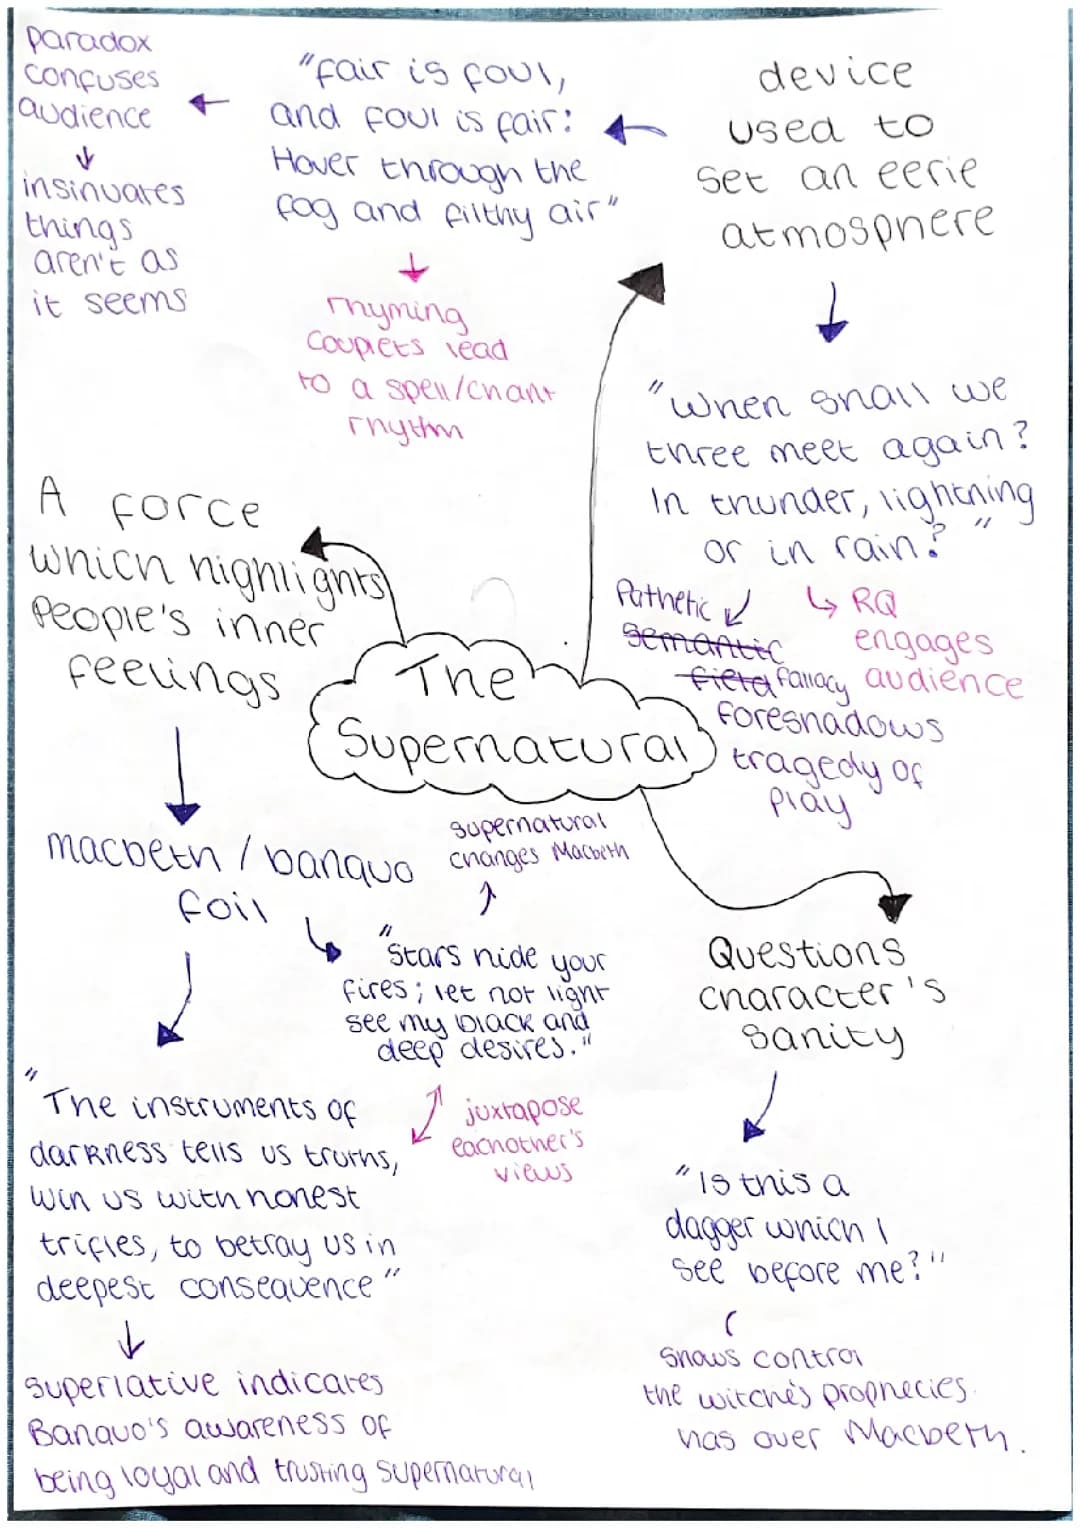 paradox
confuses
audience
insinuates
things
aren't as
it seems
"fair is foul,
and foul is fair:
Hover through the
fog and filthy air"
rhyming
couplets lead
to a spell/chant
rhythm
device
used to
set an eerie
atmosphere
"When shall we
three meet again?
In thunder, lightning
or in rain?"
Pathetic
semantic
field fallacy
foreshadows
tragedy of
play
RQ
engages
audience
A force
which highlights
people's inner
feelings
The
Supernatural
macbeth / banquo
foil
supernatural
changes Macbeth
"Stars hide your
fires; let not light
see my black and
deep desires."
juxtapose
eachother's
views
"The instruments of
darkness tells us truths,
win us with honest
trifles, to betray us in
deepest consequence"
superlative indicates
Banquo's awareness of
being loyal and trusting supernatural
Questions
character's
sanity
"Is this a
dagger which I
see before me?"
shows control
the witche's prophecies
has over Macbeth.